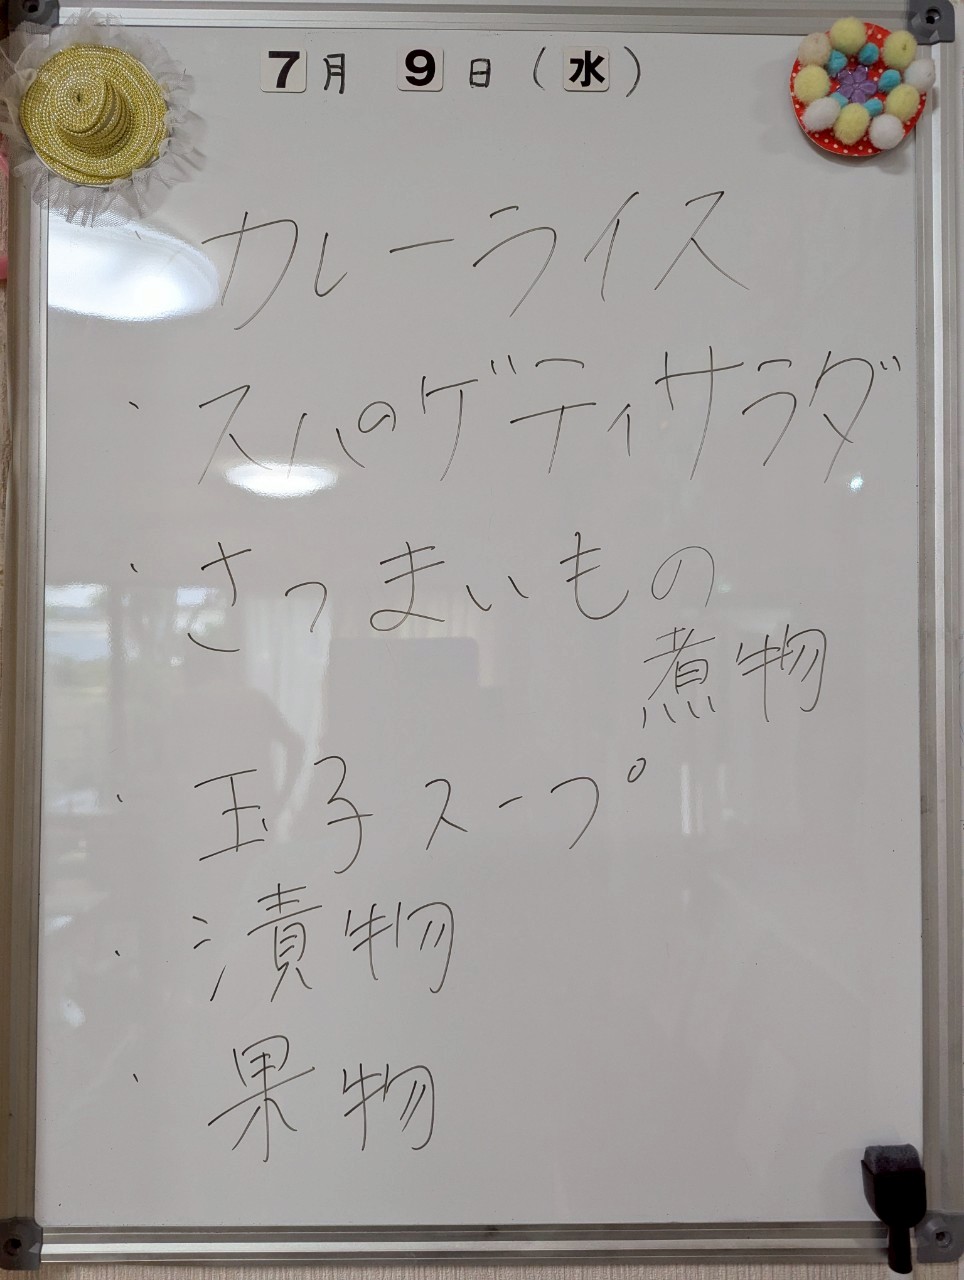 7月 9日(水)
・カレーライス
・スパゲティサラダ
・さつまいもの
煮物
・玉子スープ
・漬物
・果物